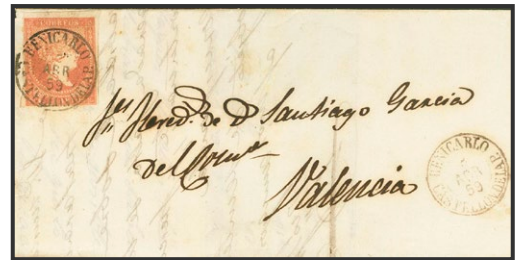 CORREOS
BENICARLO
ABR
59
CASTELLON DE LA P.
Sres Hered.s de Dn Santiago Garcia
del Comº
Valencia
BENICARLO
ABR
59
CASTELLON DE LA P.